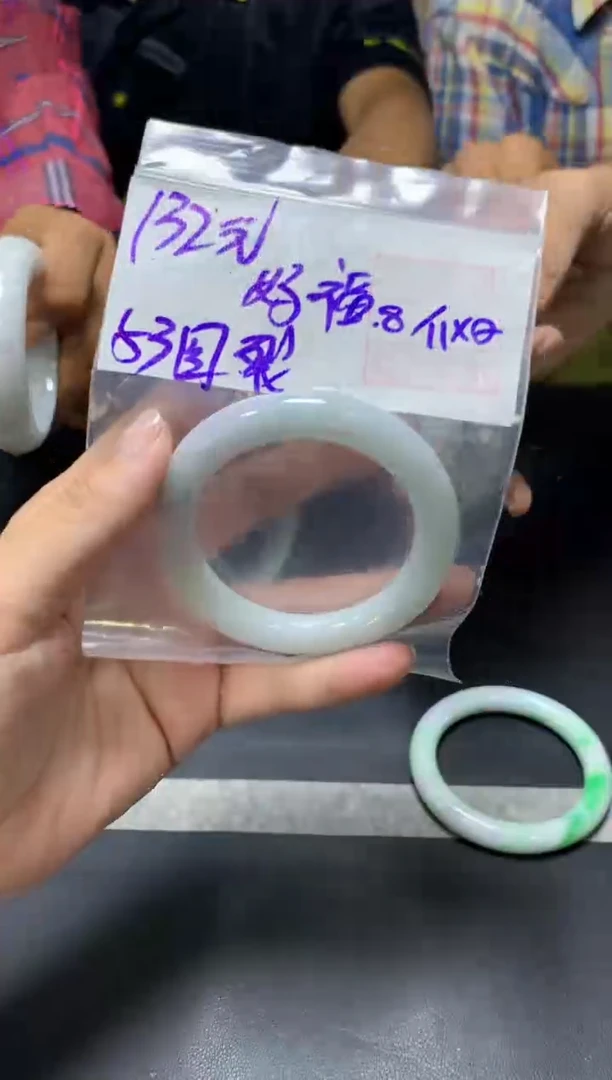 132元
好福.8
53圆裂